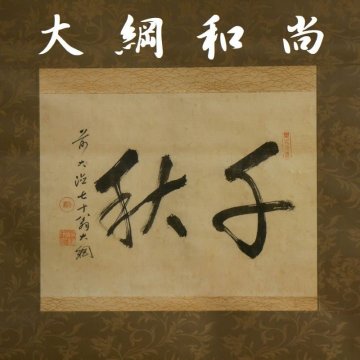 大綱和尚
千秋
前大徳七十翁大綱